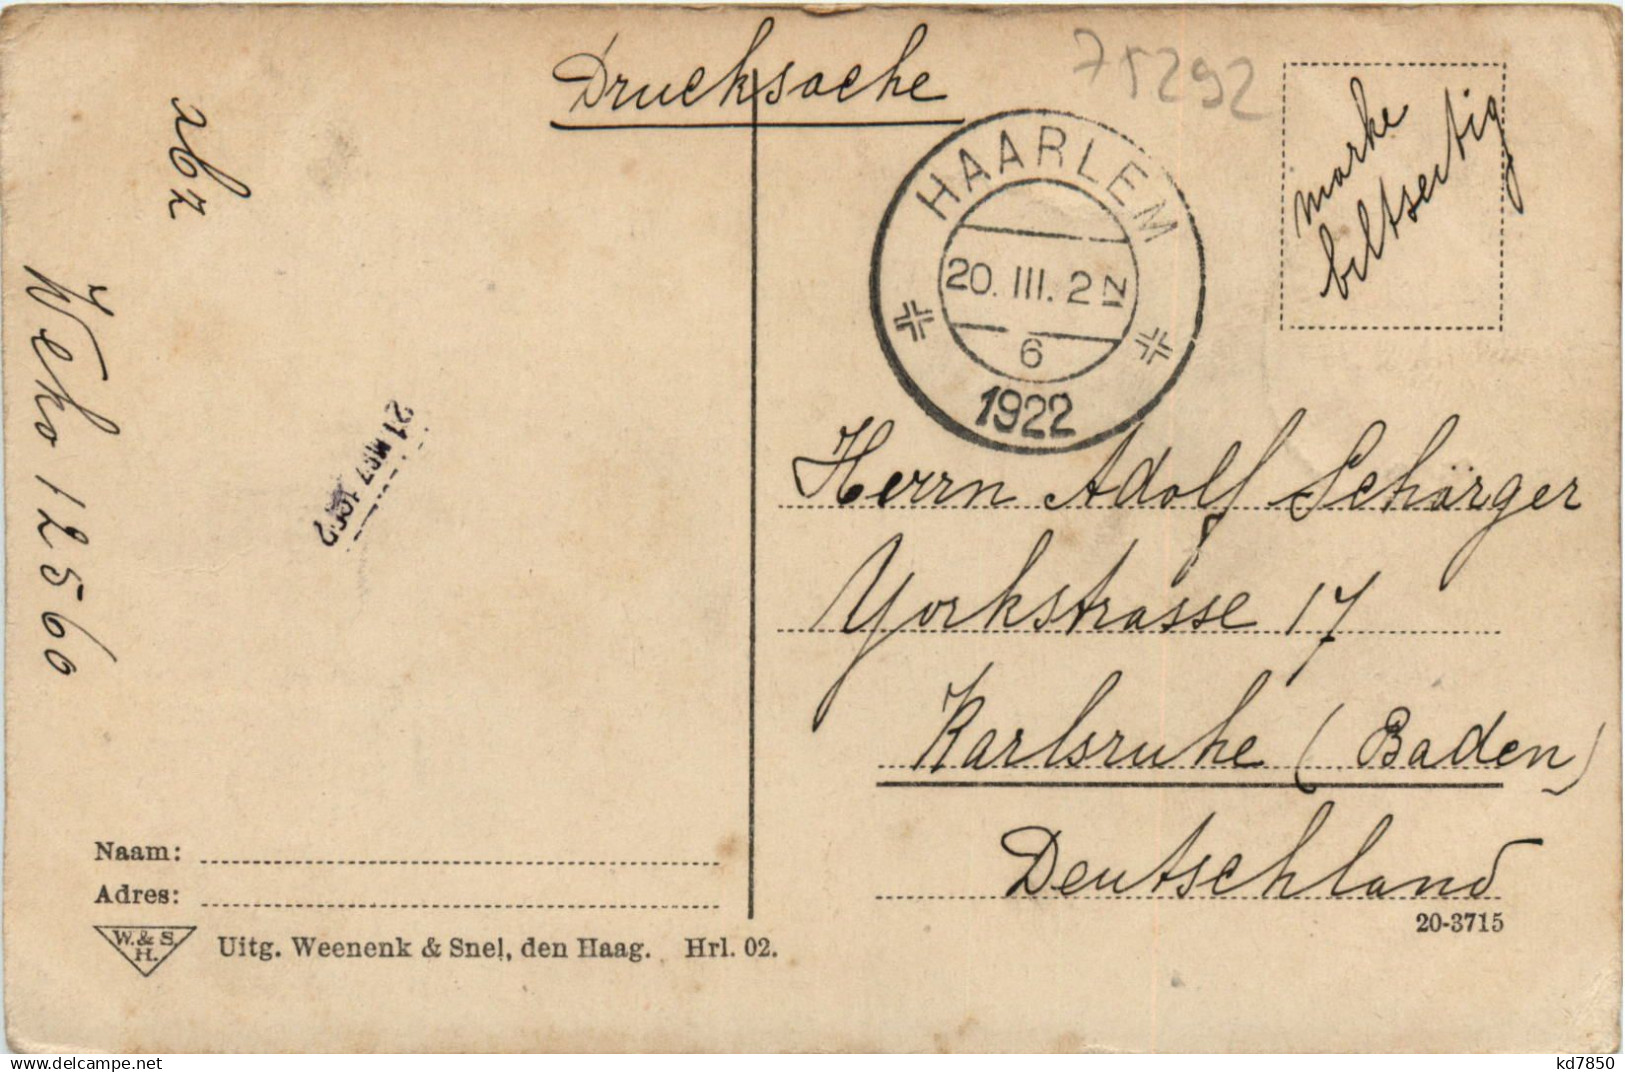 Drucksache
75292
marke
biltseitig
HAARLEM
20. III. 2 N
6
1922
Weko 12560
Herrn Adolf Schörger
Yorkstrasse 17
Karlsruhe (Baden)
Deutschland
Naam:
Adres:
W. & S.
H.
Uitg. Weenenk & Snel, den Haag. Hrl. 02.
20-3715
www.delcampe.net
kd7850